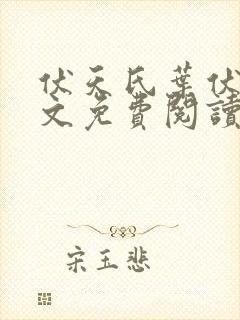 伏天氏葉伏
文免費閱讀
宋玉悲